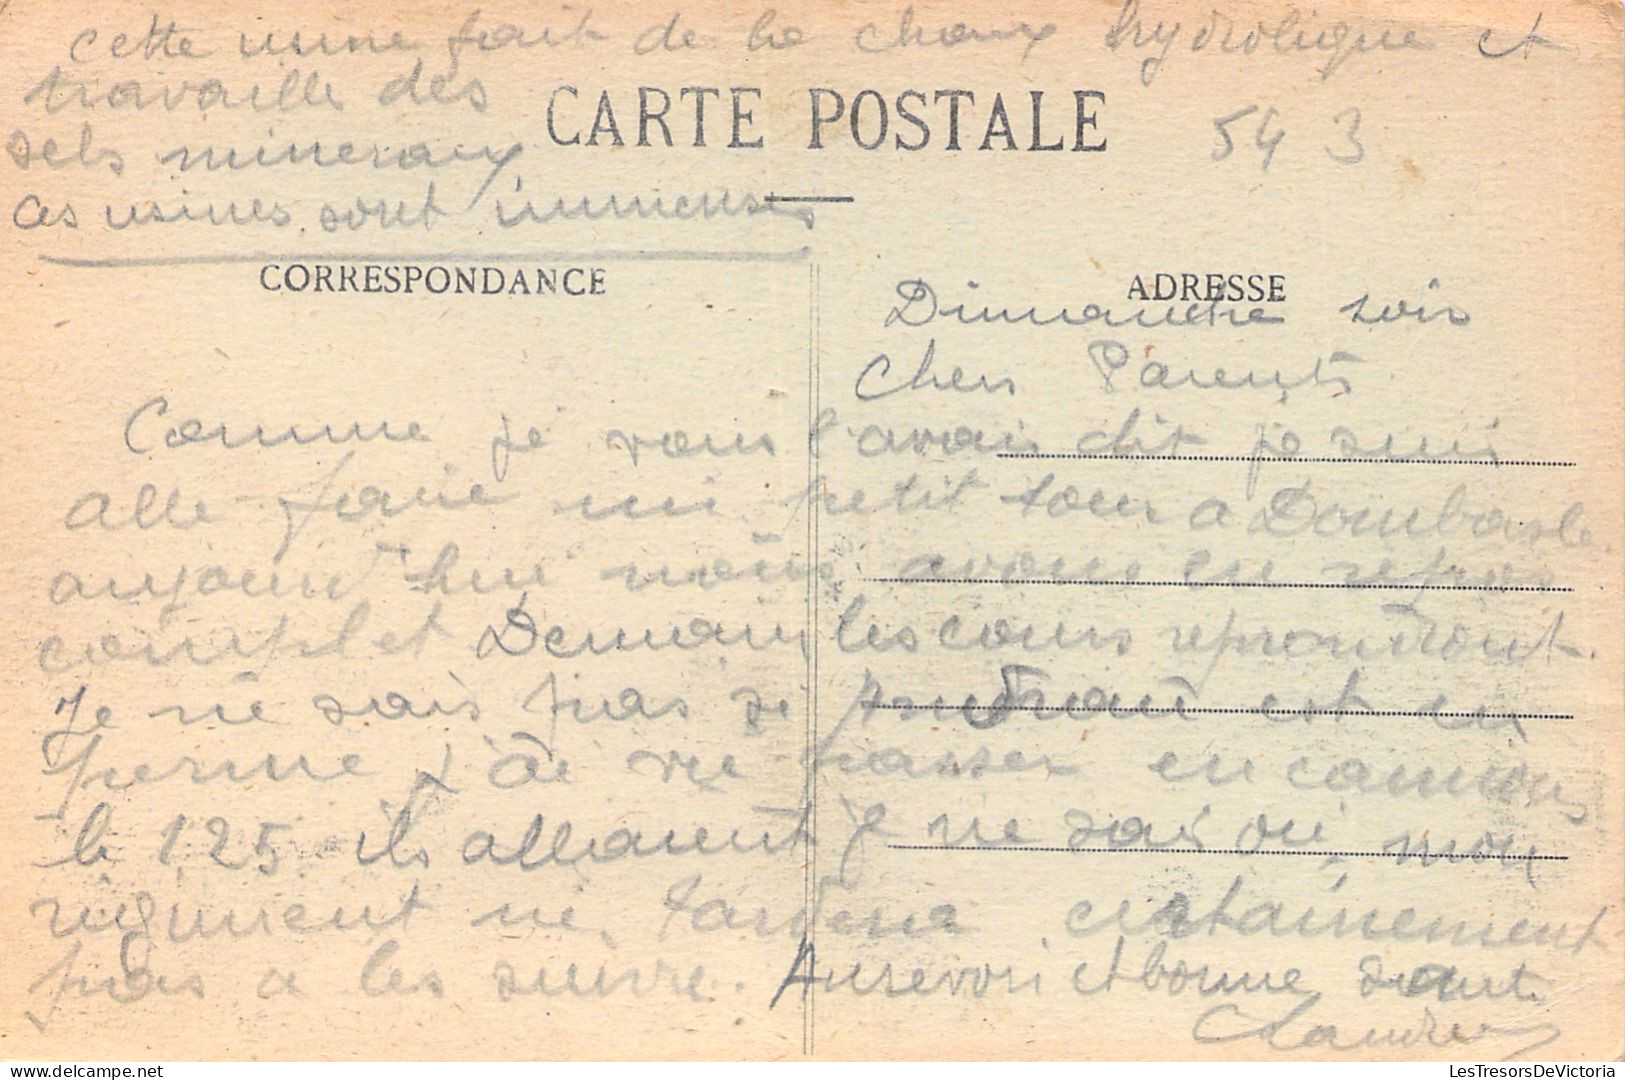 cette usine fait de la chaux hydrolique et
travaille des
sels mineraux
ces usines sont immenses
CARTE POSTALE
54 3
CORRESPONDANCE
ADRESSE
Dimanche soir
Chers Parents
Comme je vous l'avais dit je suis
alle faire un petit tour a Dombasle
aujourd'hui nous avons eu repos
complet Demain les cours reprendront.
Je ne sais pas si Andreau est en
perme j'ai vu passer en camions
le 125 ils allaient je ne sais ou, mon
regiment ne tardera certainement
pas a les suivre. Aurevoir et bonne sante
Claudre
LesTresorsDeVictoria